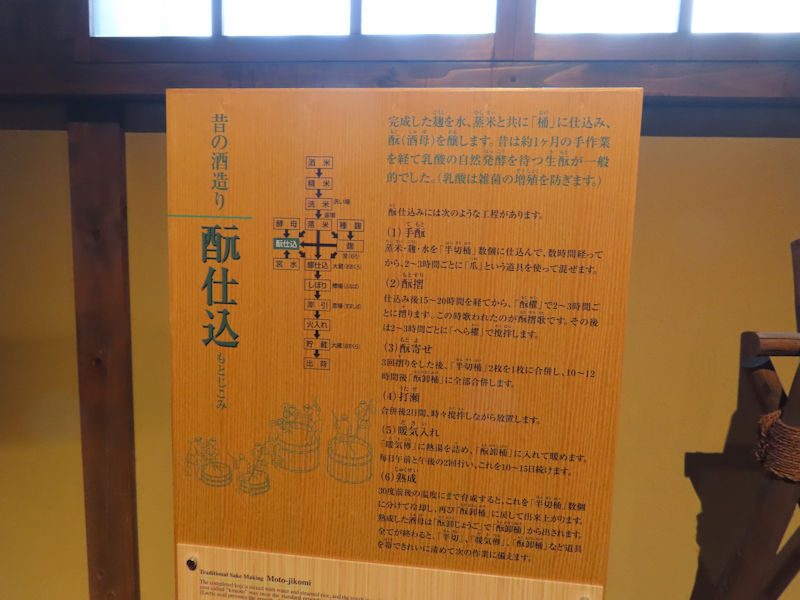 昔の酒造り
酛仕込
もとじこみ
完成した麹を水、蒸米と共に「桶」に仕込み、
酛(酒母)を醸します。昔は約1ヶ月の手作業
を経て乳酸の自然発酵を待つ生酛が一般
的でした。(乳酸は雑菌の増殖を防ぎます。)
酛仕込みには次のような工程があります。
(1)手酛
蒸米・麹・水を「半切桶」数個に仕込んで、数時間経って
から、2〜3時間ごとに「爪」という道具を使って混ぜます。
(2)酛摺
仕込み後15〜20時間を経てから、「酛櫂」で2〜3時間ご
とに摺ります。この時歌われたのが酛摺歌です。その後
は2〜3時間ごとに「へら櫂」で撹拌します。
(3)酛寄せ
3回摺りをした後、「半切桶」2枚を1枚に合併し、10〜12
時間後「酛卸桶」に全部合併します。
(4)打瀬
合併後2日間、時々撹拌しながら放置します。
(5)暖気入れ
「暖気樽」に熱湯を詰め、「酛卸桶」に入れて暖めます。
毎日午前と午後の2回行い、これを10〜15日続けます。
(6)熟成
30度前後の温度にまで育成すると、これを「半切桶」数個
に分けて冷却し、再び「酛卸桶」に戻して出来上がります。
熟成した酒母は「酛卸じょうご」で「酛卸桶」から出されます。
全てが終わると、「半切」、「暖気樽」、「酛卸桶」など道具
を全てきれいに清めて次の作業に備えます。
酒米
精米
洗米 洗い場
釜場
酵母 蒸米 種麹
酛仕込 麹
宮水 醪仕込 大蔵
しぼり 槽場
滓引
火入れ
貯蔵 大蔵
出荷
Traditional Sake Making Moto-jikomi